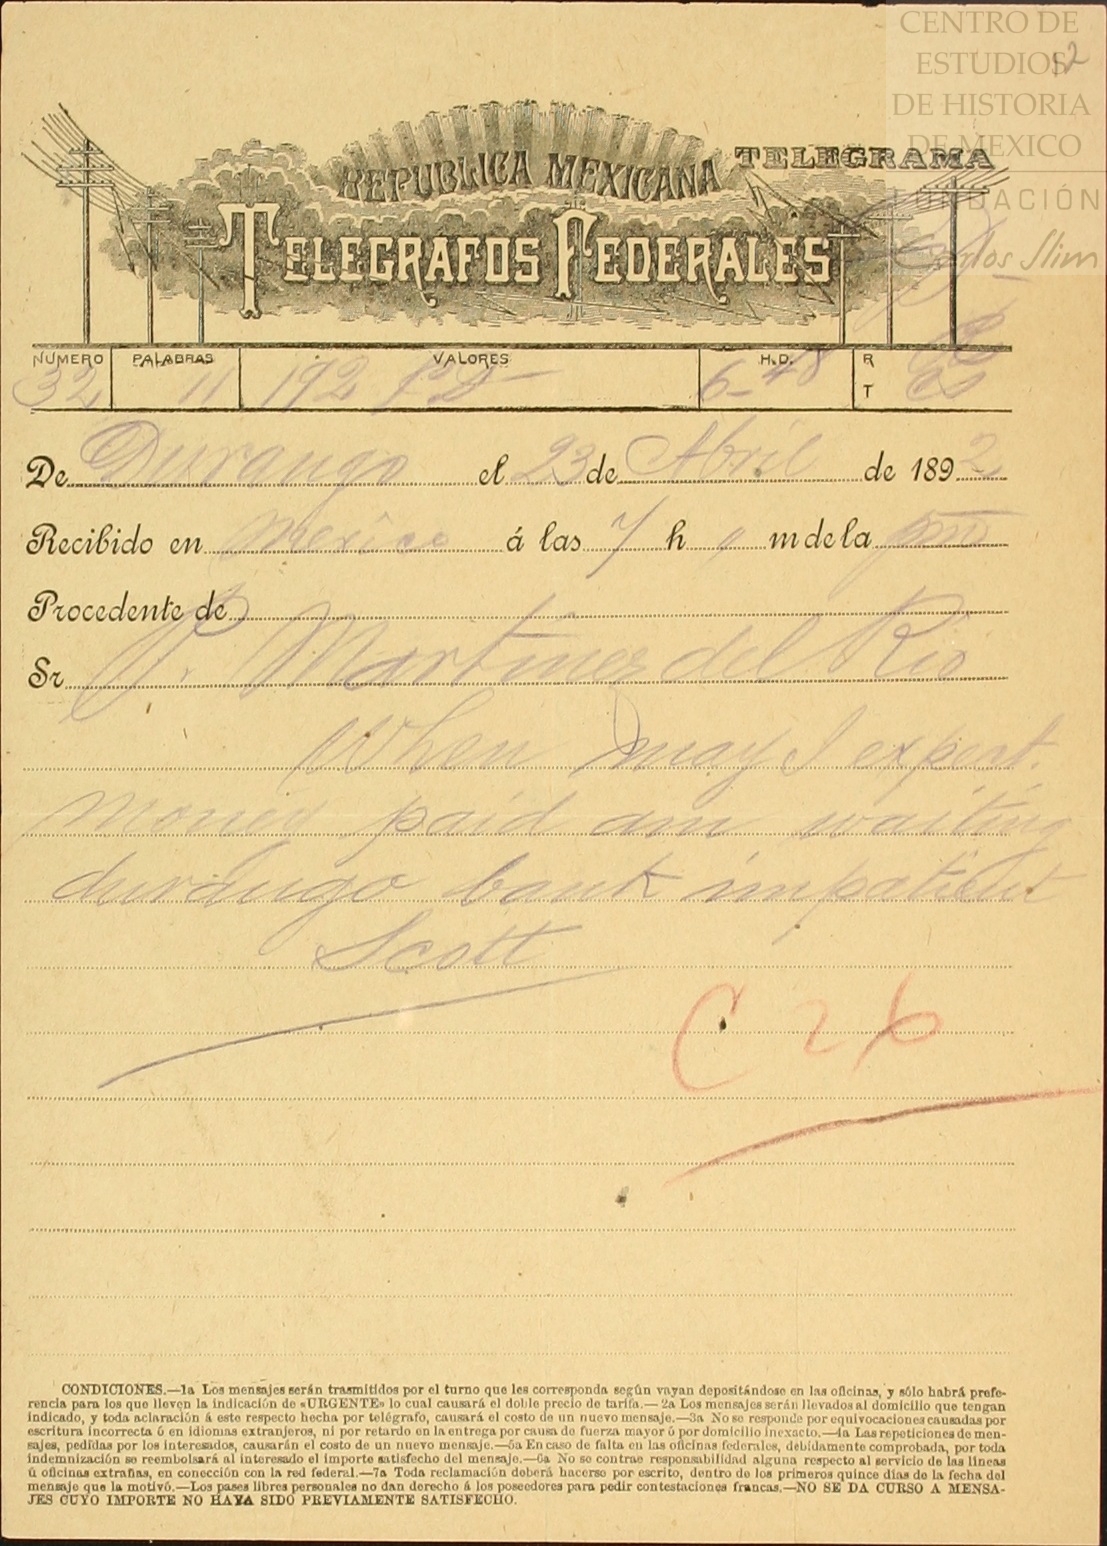 CENTRO DE
ESTUDIOS
DE HISTORIA
DE MEXICO
FUNDACIÓN
Carlos Slim
12
REPUBLICA MEXICANA
TELEGRAMA
TELEGRAFOS FEDERALES
NUMERO PALABRAS VALORES H.D. R
T
32 11 192 6-48
De Durango el 23 de Abril de 1892
Recibido en Mexico á las 7 h m de la pm
Procedente de
Sr P. Martinez del Rio
When may I expect
money paid am waiting
durango bank impatient
Scott
C 26
CONDICIONES.—1a Los mensajes serán trasmitidos por el turno que les corresponda según vayan depositándose en las oficinas, y sólo habrá prefe-
rencia para los que lleven la indicación de «URGENTE» lo cual causará el doble precio de tarifa.—2a Los mensajes serán llevados al domicilio que tengan
indicado, y toda aclaración á este respecto hecha por telégrafo, causará el costo de un nuevo mensaje.—3a No se responde por equivocaciones causadas por
escritura incorrecta ó en idiomas extranjeros, ni por retardo en la entrega por causa de fuerza mayor ó por domicilio inexacto.—4a Las repeticiones de men-
sajes, pedidas por los interesados, causarán el costo de un nuevo mensaje.—5a En caso de falta en las oficinas federales, debidamente comprobada, por toda
indemnización se reembolsará al interesado el importe satisfecho del mensaje.—6a No se contrae responsabilidad alguna respecto al servicio de las líneas
ú oficinas extrañas, en conección con la red federal.—7a Toda reclamación deberá hacerse por escrito, dentro de los primeros quince días de la fecha del
mensaje que la motivó.—Los pases libres personales no dan derecho á los poseedores para pedir contestaciones francas.—NO SE DA CURSO A MENSA-
JES CUYO IMPORTE NO HAYA SIDO PREVIAMENTE SATISFECHO.